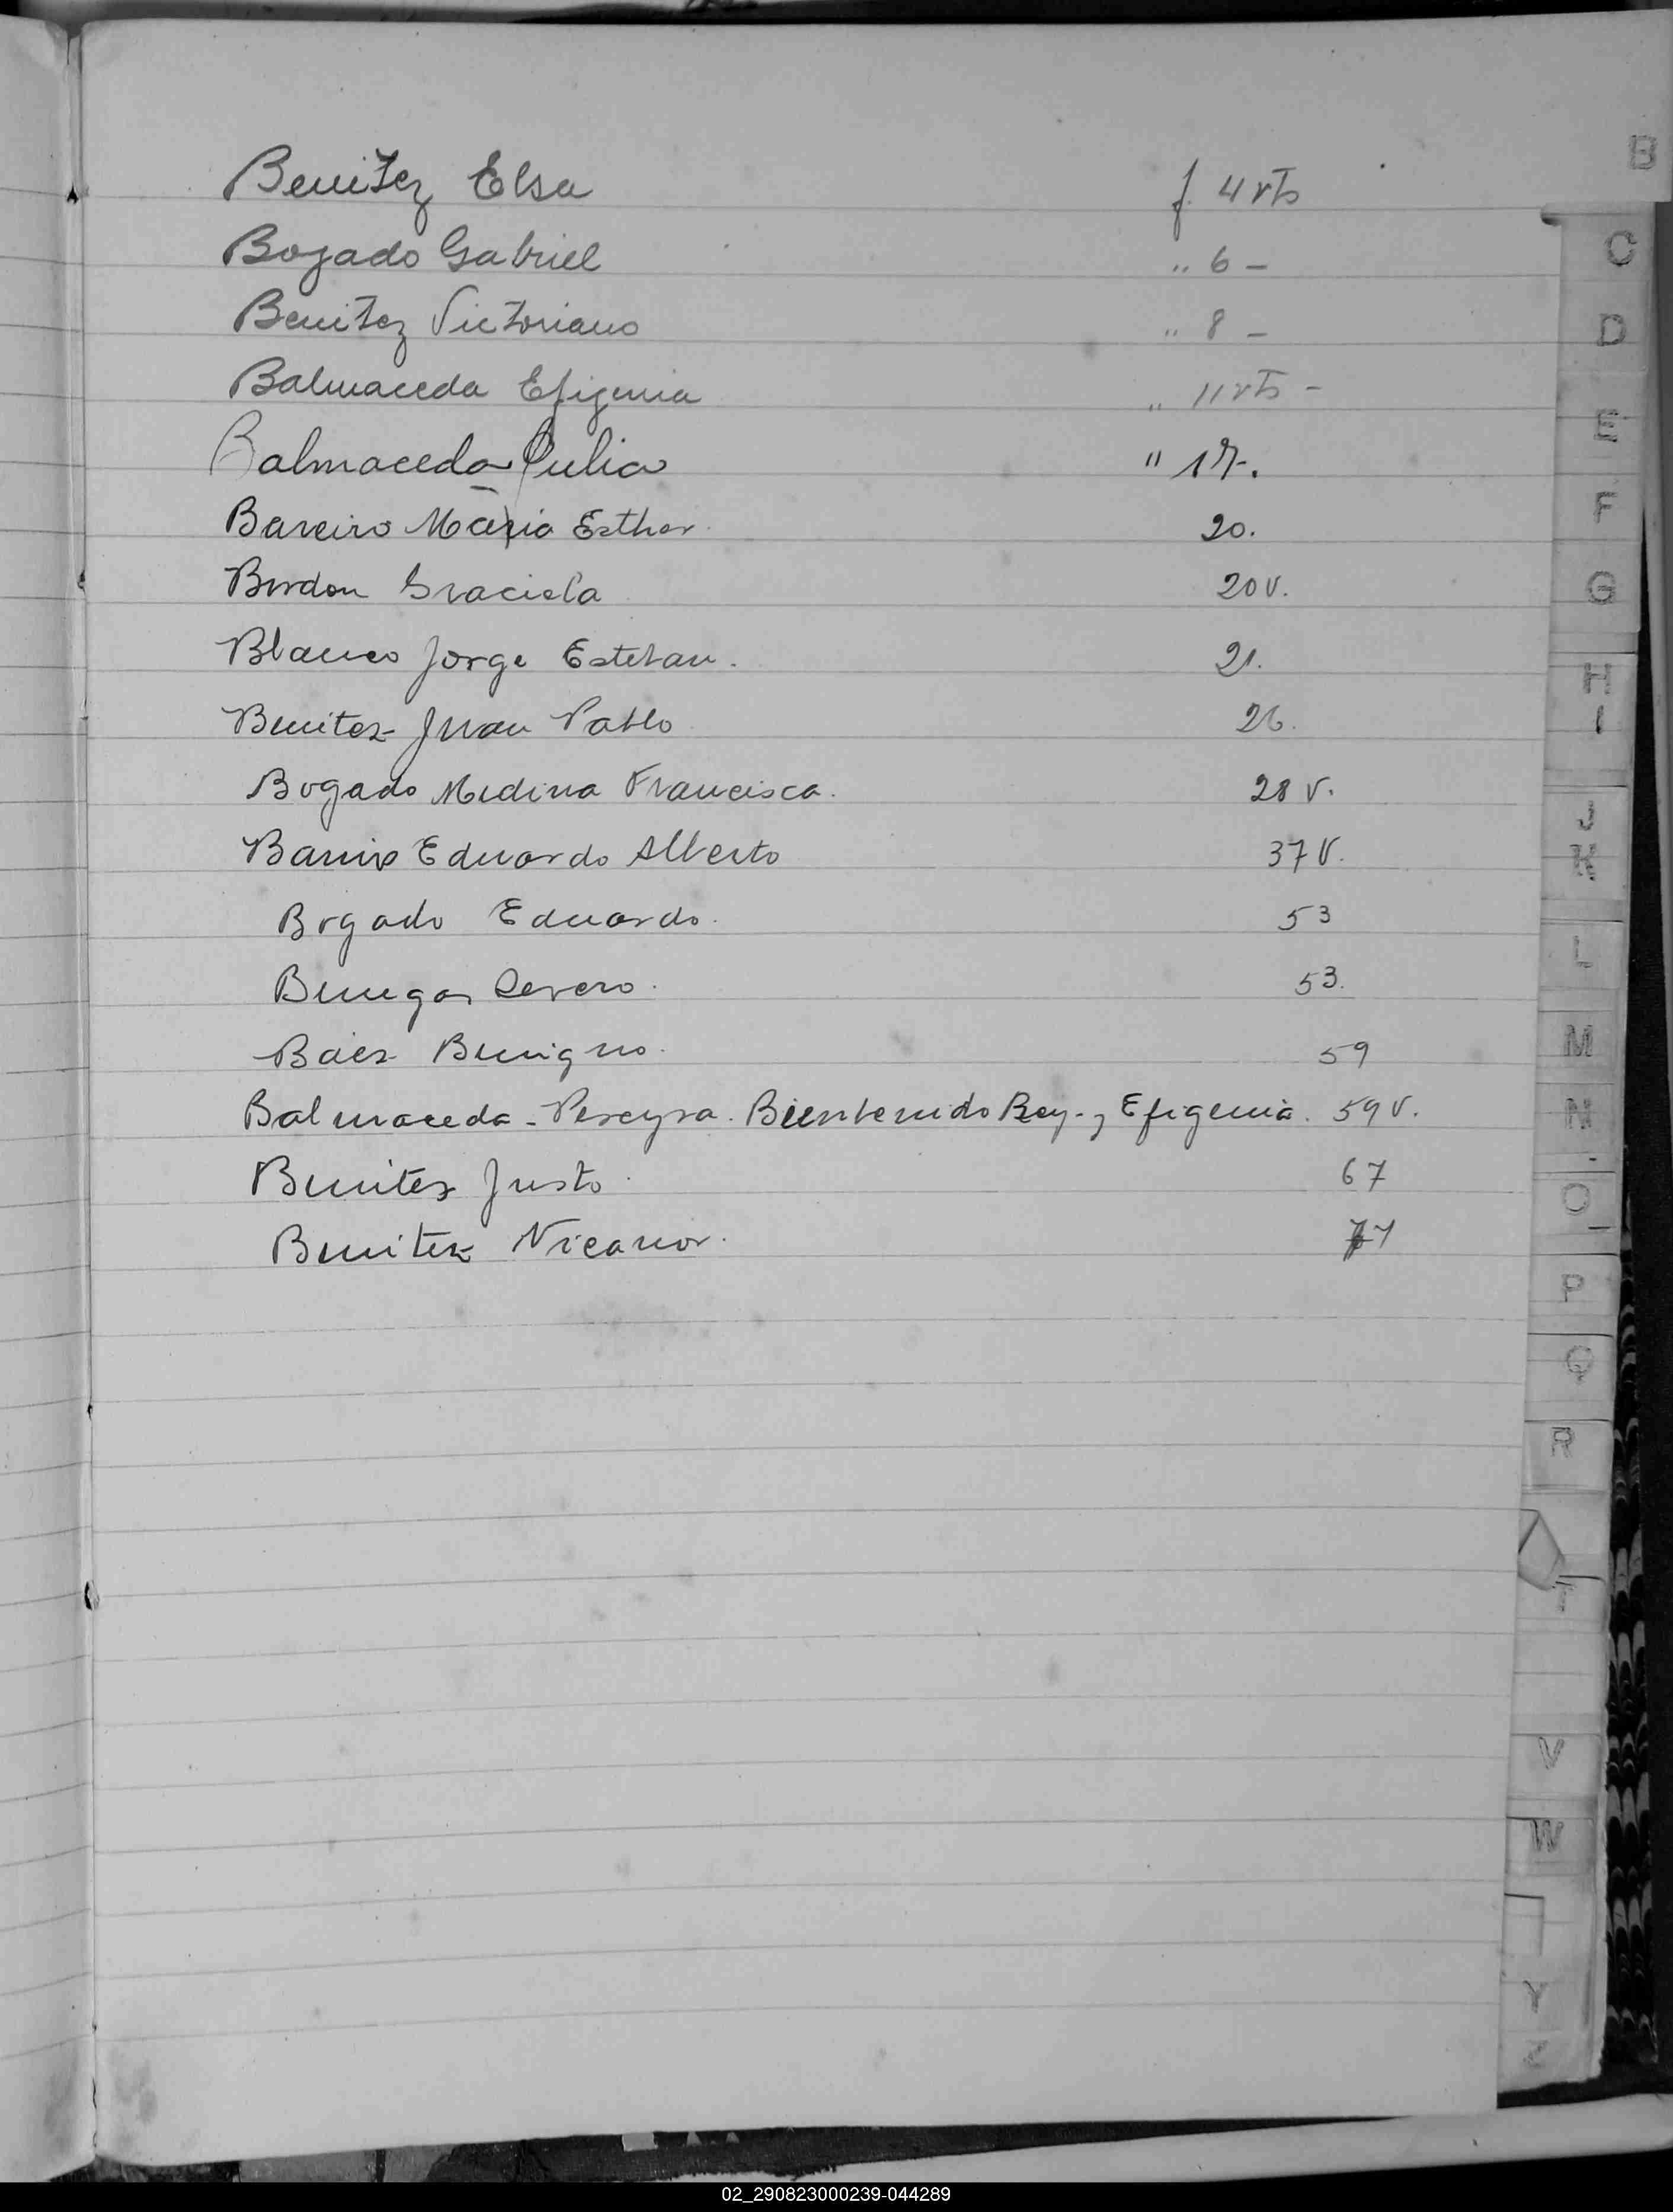 Benitez Elsa f. 4 vto
Bogado Gabriel " 6 -
Benitez Victoriano " 8 -
Balmaceda Efigenia " 11 vto -
Balmaceda Julia " 17.
Bareiro Maria Esther. 20.
Bordon Graciela 20 v.
Blanco Jorge Esteban. 21.
Benitez Juan Pablo 26.
Bogado Medina Francisca. 28 v.
Eduardo Alberto 37 V.
Bogado Eduardo. 53
Benegas Severo. 53.
Báez Benigno. 59
Balmaceda - Pereyra. Bienvenido Rey - y Efigenia. 59 v.
Benitez Justo 67
Benitez Nicanor. 71
B
C
D
E
F
G
H
I
J
K
L
M
N
O
P
Q
R
T
V
W
Y
Z
02_290823000239-044289